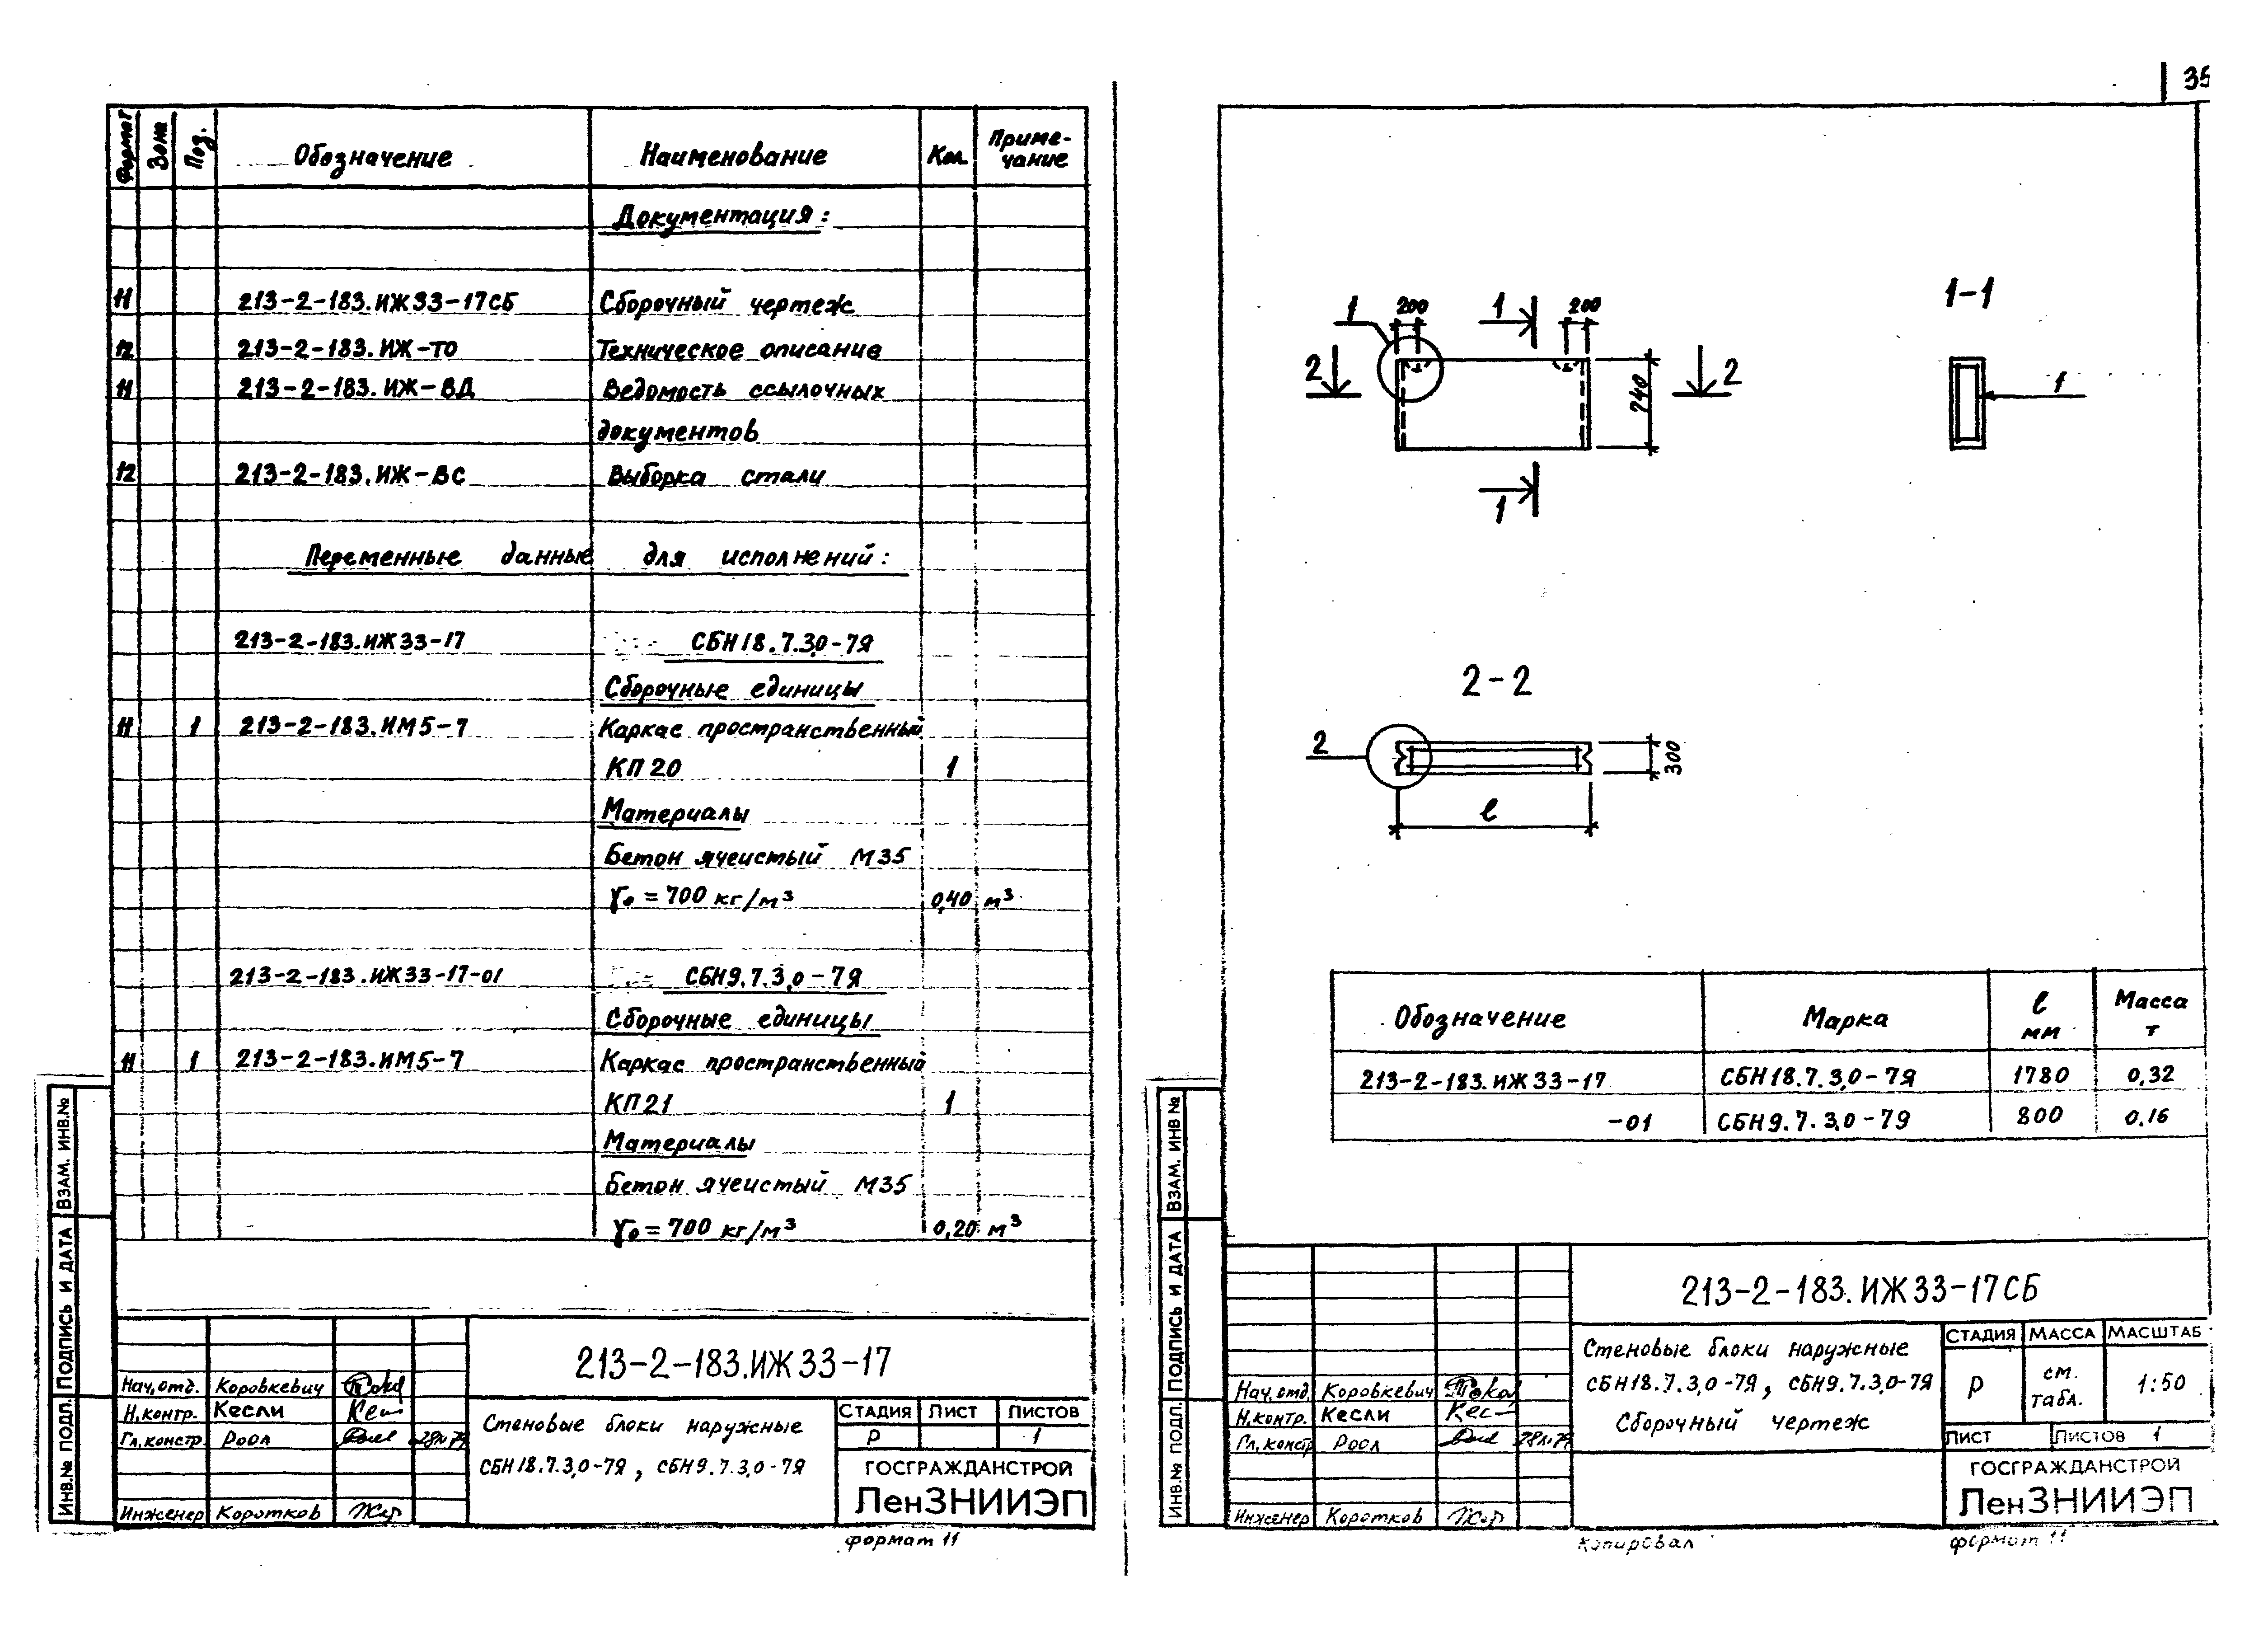 35
Формат Зона Поз. Обозначение Наименование Кол. Приме-
чание
Документация:
11 213-2-183.ИЖ33-17СБ Сборочный чертеж
12 213-2-183.ИЖ-ТО Техническое описание
11 213-2-183.ИЖ-ВД Ведомость ссылочных
документов
12 213-2-183.ИЖ-ВС Выборка стали
Переменные данные для исполнений:
213-2-183.ИЖ33-17 СБН18.7.3,0-7Я
Сборочные единицы
11 1 213-2-183.ИМ5-7 Каркас пространственный
КП20 1
Материалы
Бетон ячеистый М35
γ₀=700 кг/м³ 0,40 м³
213-2-183.ИЖ33-17-01 СБН9.7.3,0-7Я
Сборочные единицы
11 1 213-2-183.ИМ5-7 Каркас пространственный
КП21 1
Материалы
Бетон ячеистый М35
γ₀=700 кг/м³ 0,20 м³
ИНВ.№ ПОДЛ. ПОДПИСЬ И ДАТА ВЗАМ. ИНВ.№
213-2-183.ИЖ33-17
Нач.отд. Коровкевич
Н.контр. Кесли
Гл.констр. Роол
Инженер Коротков
Стеновые блоки наружные
СБН18.7.3,0-7Я, СБН9.7.3,0-7Я
СТАДИЯ ЛИСТ ЛИСТОВ
Р 1
ГОСГРАЖДАНСТРОЙ
ЛенЗНИИЭП
формат 11
1 200 1 200
2 2
240
1
1-1
1
2-2
2
300
ℓ
Обозначение Марка ℓ
мм Масса
т
213-2-183.ИЖ33-17 СБН18.7.3,0-7Я 1780 0,32
-01 СБН9.7.3,0-79 800 0.16
ИНВ.№ ПОДЛ. ПОДПИСЬ И ДАТА ВЗАМ. ИНВ №
213-2-183.ИЖ33-17СБ
Нач.отд. Коровкевич
Н.контр. Кесли
Гл.констр Роол
Инженер Коротков
Стеновые блоки наружные
СБН18.7.3,0-7Я, СБН9.7.3,0-7Я
Сборочный чертеж
СТАДИЯ МАССА МАСШТАБ
Р см.
табл. 1:50
ЛИСТ ЛИСТОВ 1
ГОСГРАЖДАНСТРОЙ
ЛенЗНИИЭП
Копировал формат 11